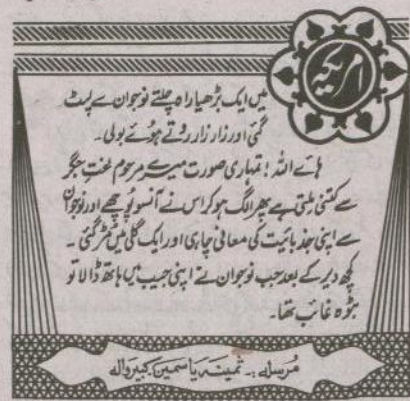 امریکہ
میں ایک بڑھیا راہ چلتے نوجوان سے لپٹ
گئی اور زار زار روتے ہوئے بولی۔
ہائے اللہ! تمہاری صورت میرے مرحوم لختِ جگر
سے کتنی ملتی ہے پھر الگ ہو کر اس نے آنسو پونچھے اور نوجوان
سے اپنی جذباتیت کی معافی چاہی اور ایک گلی میں مڑ گئی۔
کچھ دیر کے بعد جب نوجوان نے اپنی جیب میں ہاتھ ڈالا تو
بٹوہ غائب تھا۔
مُرسلہ:۔ ثمینہ یاسمین کبیر والہ